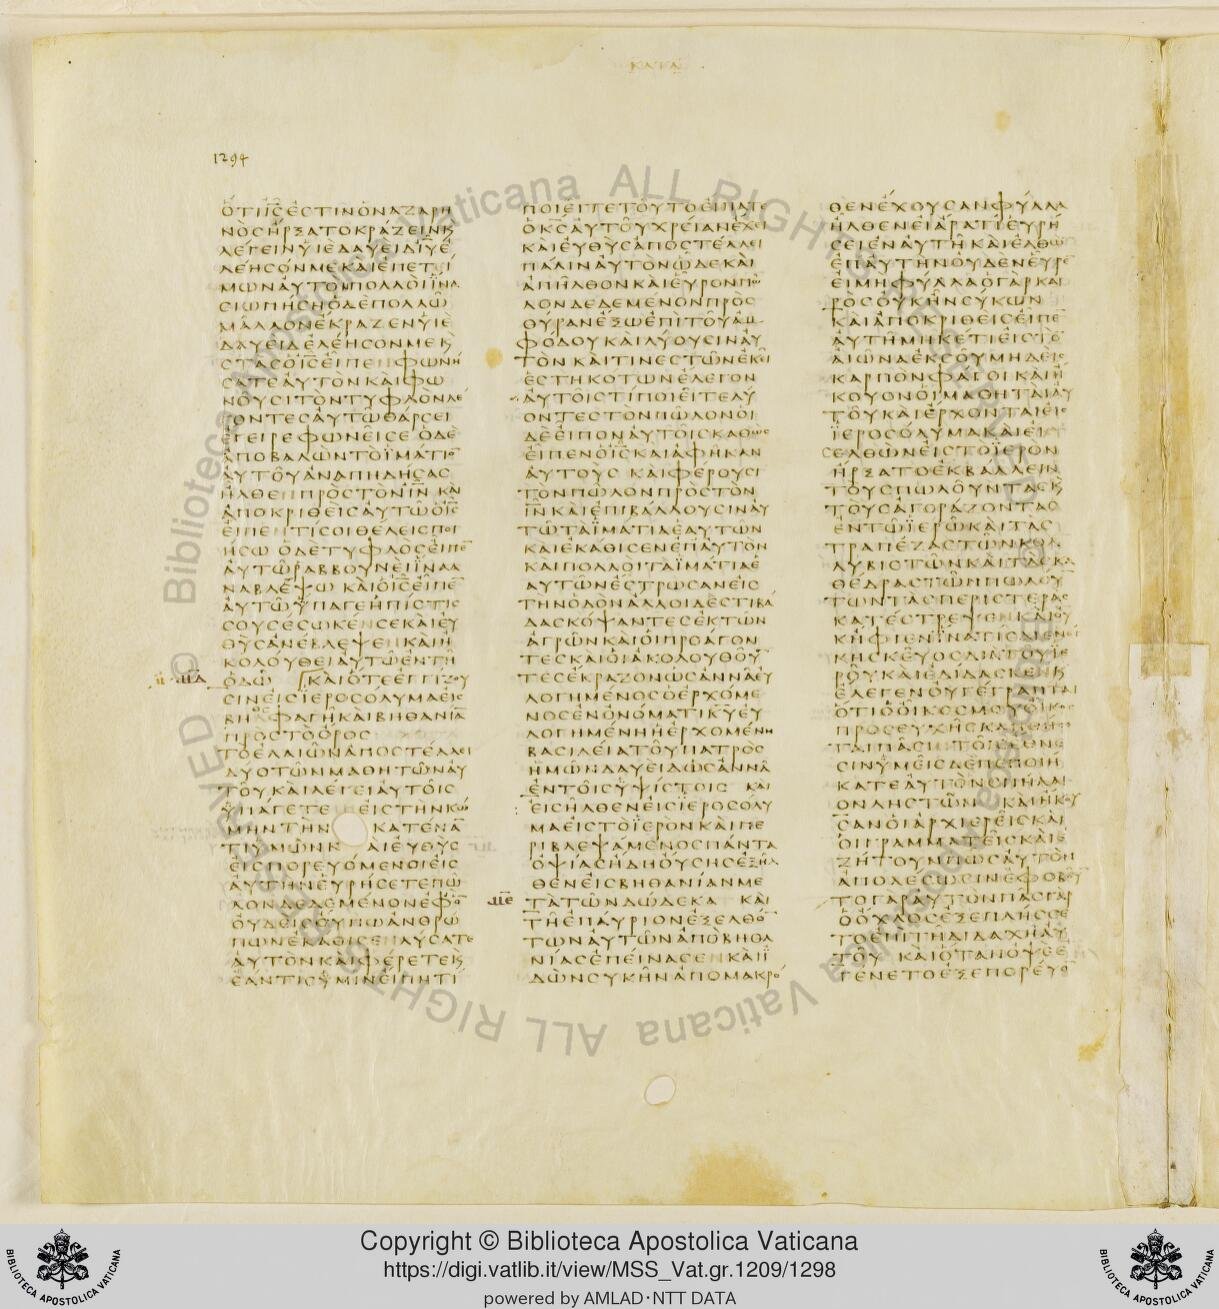 ΚΑΤΑ
1294
ΟΤΙΙ̅Σ̅ΕΣΤΙΝΟΝΑΖΑΡΗ
ΝΟΣΗΡΞΑΤΟΚΡΑΖΕΙΝΚ
ΛΕΓΕΙΝΥΙΕΔΑΥΕΙΔΙ̅Υ̅Ε
ΛΕΗΣΟΝΜΕΚΑΙΕΠΕΤΙ
ΜΩΝΑΥΤΩΠΟΛΛΟΙΙΝΑ
ΣΙΩΠΗΣΗΟΔΕΠΟΛΛΩ
ΜΑΛΛΟΝΕΚΡΑΖΕΝΥΙΕ
ΔΑΥΕΙΔΕΛΕΗΣΟΝΜΕΚ
ΣΤΑΣΟΙ̅Σ̅ΕΙΠΕΝΦΩΝΗ
ΣΑΤΕΑΥΤΟΝΚΑΙΦΩ
ΝΟΥΣΙΤΟΝΤΥΦΛΟΝΛΕ
ΓΟΝΤΕΣΑΥΤΩΘΑΡΣΕΙ
ΕΓΕΙΡΕΦΩΝΕΙΣΕ ΟΔΕ
ΑΠΟΒΑΛΩΝΤΟΙΜΑΤΙΟ̅
ΑΥΤΟΥΑΝΑΠΗΔΗΣΑΣ
ΗΛΘΕΝΠΡΟΣΤΟΝΙ̅Ν̅ ΚΑΙ
ΑΠΟΚΡΙΘΕΙΣΑΥΤΩΟΙ̅Σ̅
ΕΙΠΕΝΤΙΣΟΙΘΕΛΕΙΣΠΟΙ
ΗΣΩ ΟΔΕΤΥΦΛΟΣΕΙΠΕ̅
ΑΥΤΩΡΑΒΒΟΥΝΕΙΙΝΑΑ
ΝΑΒΛΕΨΩ ΚΑΙΟΙ̅Σ̅ΕΙΠΕ̅
ΑΥΤΩΥΠΑΓΕΗΠΙΣΤΙΣ
ΣΟΥΣΕΣΩΚΕΝΣΕΚΑΙΕΥ
ΘΥΣΑΝΕΒΛΕΨΕΝΚΑΙΗ
ΚΟΛΟΥΘΕΙΑΥΤΩΕΝΤΗ
ΟΔΩ ΚΑΙΟΤΕΕΓΓΙΖΟΥ
ΣΙΝΕΙΣΙΕΡΟΣΟΛΥΜΑΕΙΣ
ΒΗΘΦΑΓΗΚΑΙΒΗΘΑΝΙΑ̅
ΠΡΟΣΤΟΟΡΟΣ
ΤΟΕΛΑΙΩΝΑΠΟΣΤΕΛΛΕΙ
ΔΥΟΤΩΝΜΑΘΗΤΩΝΑΥ
ΤΟΥΚΑΙΛΕΓΕΙΑΥΤΟΙΣ
ΥΠΑΓΕΤΕ ΕΙΣΤΗΝΚΩ
ΜΗΝΤΗΝ ΚΑΤΕΝΑ̅
ΤΙΥΜΩΝΚ ΑΙΕΥΘΥΣ
ΕΙΣΠΟΡΕΥΟΜΕΝΟΙΕΙΣ
ΑΥΤΗΝΕΥΡΗΣΕΤΕΠΩ
ΛΟΝΔΕΔΕΜΕΝΟΝΕΦΟ̅
ΟΥΔΕΙΣΟΥΠΩΑΝΘΡΩ
ΠΩΝΕΚΑΘΙΣΕΝΛΥΣΑΤΕ
ΑΥΤΟΝΚΑΙΦΕΡΕΤΕΚ
ΕΑΝΤΙΣΥΜΙΝΕΙΠΗΤΙ
ΠΟΙΕΙΤΕΤΟΥΤΟΕΙΠΑΤΕ
ΟΚ̅Σ̅ΑΥΤΟΥΧΡΕΙΑΝΕΧΕΙ
ΚΑΙΕΥΘΥΣΑΠΟΣΤΕΛΛΕΙ
ΠΑΛΙΝΑΥΤΟΝΩΔΕΚΑΙ
ΑΠΗΛΘΟΝΚΑΙΕΥΡΟΝΠΩ
ΛΟΝΔΕΔΕΜΕΝΟΝΠΡΟΣ
ΘΥΡΑΝΕΞΩΕΠΙΤΟΥΑΜ
ΦΟΔΟΥΚΑΙΛΥΟΥΣΙΝΑΥ
ΤΟΝΚΑΙΤΙΝΕΣΤΩΝΕΚΕΙ
ΕΣΤΗΚΟΤΩΝΕΛΕΓΟΝ
ΑΥΤΟΙΣΤΙΠΟΙΕΙΤΕΛΥ
ΟΝΤΕΣΤΟΝΠΩΛΟΝΟΙ
ΔΕΕΙΠΟΝΑΥΤΟΙΣΚΑΘΩΣ
ΕΙΠΕΝΟΙ̅Σ̅ΚΑΙΑΦΗΚΑΝ
ΑΥΤΟΥΣ ΚΑΙΦΕΡΟΥΣΙ
ΤΟΝΠΩΛΟΝΠΡΟΣΤΟΝ
Ι̅Ν̅ΚΑΙΕΠΙΒΑΛΛΟΥΣΙΝΑΥ
ΤΩΤΑΙΜΑΤΙΑΕΑΥΤΩΝ
ΚΑΙΕΚΑΘΙΣΕΝΕΠΑΥΤΟΝ
ΚΑΙΠΟΛΛΟΙΤΑΙΜΑΤΙΑΕ
ΑΥΤΩΝΕΣΤΡΩΣΑΝΕΙΣ
ΤΗΝΟΔΟΝΑΛΛΟΙΔΕΣΤΙΒΑ
ΔΑΣΚΟΨΑΝΤΕΣΕΚΤΩΝ
ΑΓΡΩΝΚΑΙΟΙΠΡΟΑΓΟΝ
ΤΕΣΚΑΙΟΙΑΚΟΛΟΥΘΟΥ̅
ΤΕΣΕΚΡΑΖΟΝΩΣΑΝΝΑΕΥ
ΛΟΓΗΜΕΝΟΣΟΕΡΧΟΜΕ
ΝΟΣΕΝΟΝΟΜΑΤΙΚ̅Υ̅ΕΥ
ΛΟΓΗΜΕΝΗΗΕΡΧΟΜΕΝΗ
ΒΑΣΙΛΕΙΑΤΟΥΠΑΤΡΟΣ
ΗΜΩΝΔΑΥΕΙΔΩΣΑΝΝΑ
ΕΝΤΟΙΣΥΨΙΣΤΟΙΣ ΚΑΙ
ΕΙΣΗΛΘΕΝΕΙΣΙΕΡΟΣΟΛΥ
ΜΑΕΙΣΤΟΙΕΡΟΝΚΑΙΠΕ
ΡΙΒΛΕΨΑΜΕΝΟΣΠΑΝΤΑ
ΟΨΙΑΣΗΔΗΟΥΣΗΣΕΞΗΛ
ΘΕΝΕΙΣΒΗΘΑΝΙΑΝΜΕ
ΤΑΤΩΝΔΩΔΕΚΑ ΚΑΙ
ΤΗΕΠΑΥΡΙΟΝΕΞΕΛΘΟ̅
ΤΩΝΑΥΤΩΝΑΠΟΒΗΘΑ
ΝΙΑΣΕΠΕΙΝΑΣΕΝΚΑΙΙ
ΔΩΝΣΥΚΗΝΑΠΟΜΑΚΡΟ
ΘΕΝΕΧΟΥΣΑΝΦΥΛΛΑ
ΗΛΘΕΝΕΙΑΡΑΤΙΕΥΡΗ
ΣΕΙΕΝΑΥΤΗΚΑΙΕΛΘΩ̅
ΕΠΑΥΤΗΝΟΥΔΕΝΕΥΡΕ̅
ΕΙΜΗΦΥΛΛΑΟΓΑΡΚΑΙ
ΡΟΣΟΥΚΗΝΣΥΚΩΝ
ΚΑΙΑΠΟΚΡΙΘΕΙΣΕΙΠΕ̅
ΑΥΤΗΜΗΚΕΤΙΕΙΣΤΟ̅
ΑΙΩΝΑΕΚΣΟΥΜΗΔΕΙΣ
ΚΑΡΠΟΝΦΑΓΟΙΚΑΙΗ
ΚΟΥΟΝΟΙΜΑΘΗΤΑΙΑΥ
ΤΟΥΚΑΙΕΡΧΟΝΤΑΙΕΙΣ
ΙΕΡΟΣΟΛΥΜΑΚΑΙΕΙΣ
ΕΛΘΩΝΕΙΣΤΟΙΕΡΟΝ
ΗΡΞΑΤΟΕΚΒΑΛΛΕΙΝ
ΤΟΥΣΠΩΛΟΥΝΤΑΣΚ
ΤΟΥΣΑΓΟΡΑΖΟΝΤΑΣ
ΕΝΤΩΙΕΡΩΚΑΙΤΑΣ
ΤΡΑΠΕΖΑΣΤΩΝΚΟΛ
ΛΥΒΙΣΤΩΝΚΑΙΤΑΣΚΑ
ΘΕΔΡΑΣΤΩΝΠΩΛΟΥ̅
ΤΩΝΤΑΣΠΕΡΙΣΤΕΡΑΣ
ΚΑΤΕΣΤΡΕΨΕΝΚΑΙΟΥ
ΚΗΦΙΕΝΙΝΑΤΙΣΔΙΕΝΕΓ
ΚΗΣΚΕΥΟΣΔΙΑΤΟΥΙΕ
ΡΟΥΚΑΙΕΔΙΔΑΣΚΕΝΚ
ΕΛΕΓΕΝΟΥΓΕΓΡΑΠΤΑΙ
ΟΤΙΟΟΙΚΟΣΜΟΥΟΙΚΟΣ
ΠΡΟΣΕΥΧΗΣΚΛΗΘΗΣΕ
ΤΑΙΠΑΣΙΝΤΟΙΣΕΘΝΕ
ΣΙΝΥΜΕΙΣΔΕΠΕΠΟΙΗ
ΚΑΤΕΑΥΤΟΝΣΠΗΛΑΙ
ΟΝΛΗΣΤΩΝ ΚΑΙΗΚΟΥ
ΣΑΝΟΙΑΡΧΙΕΡΕΙΣΚΑΙ
ΟΙΓΡΑΜΜΑΤΕΙΣΚΑΙΕ
ΖΗΤΟΥΝΠΩΣΑΥΤΟΝ
ΑΠΟΛΕΣΩΣΙΝΕΦΟΒΟΥ̅
ΤΟΓΑΡΑΥΤΟΝΠΑΣΓΑΡ
ΟΟΧΛΟΣΕΞΕΠΛΗΣΣΕ
ΤΟΕΠΙΤΗΔΙΔΑΧΗΑΥ
ΤΟΥ ΚΑΙΟΤΑΝΟΨΕΕ
ΓΕΝΕΤΟΕΞΕΠΟΡΕΥΟ̅
Copyright © Biblioteca Apostolica Vaticana
https://digi.vatlib.it/view/MSS_Vat.gr.1209/1298
powered by AMLAD·NTT DATA